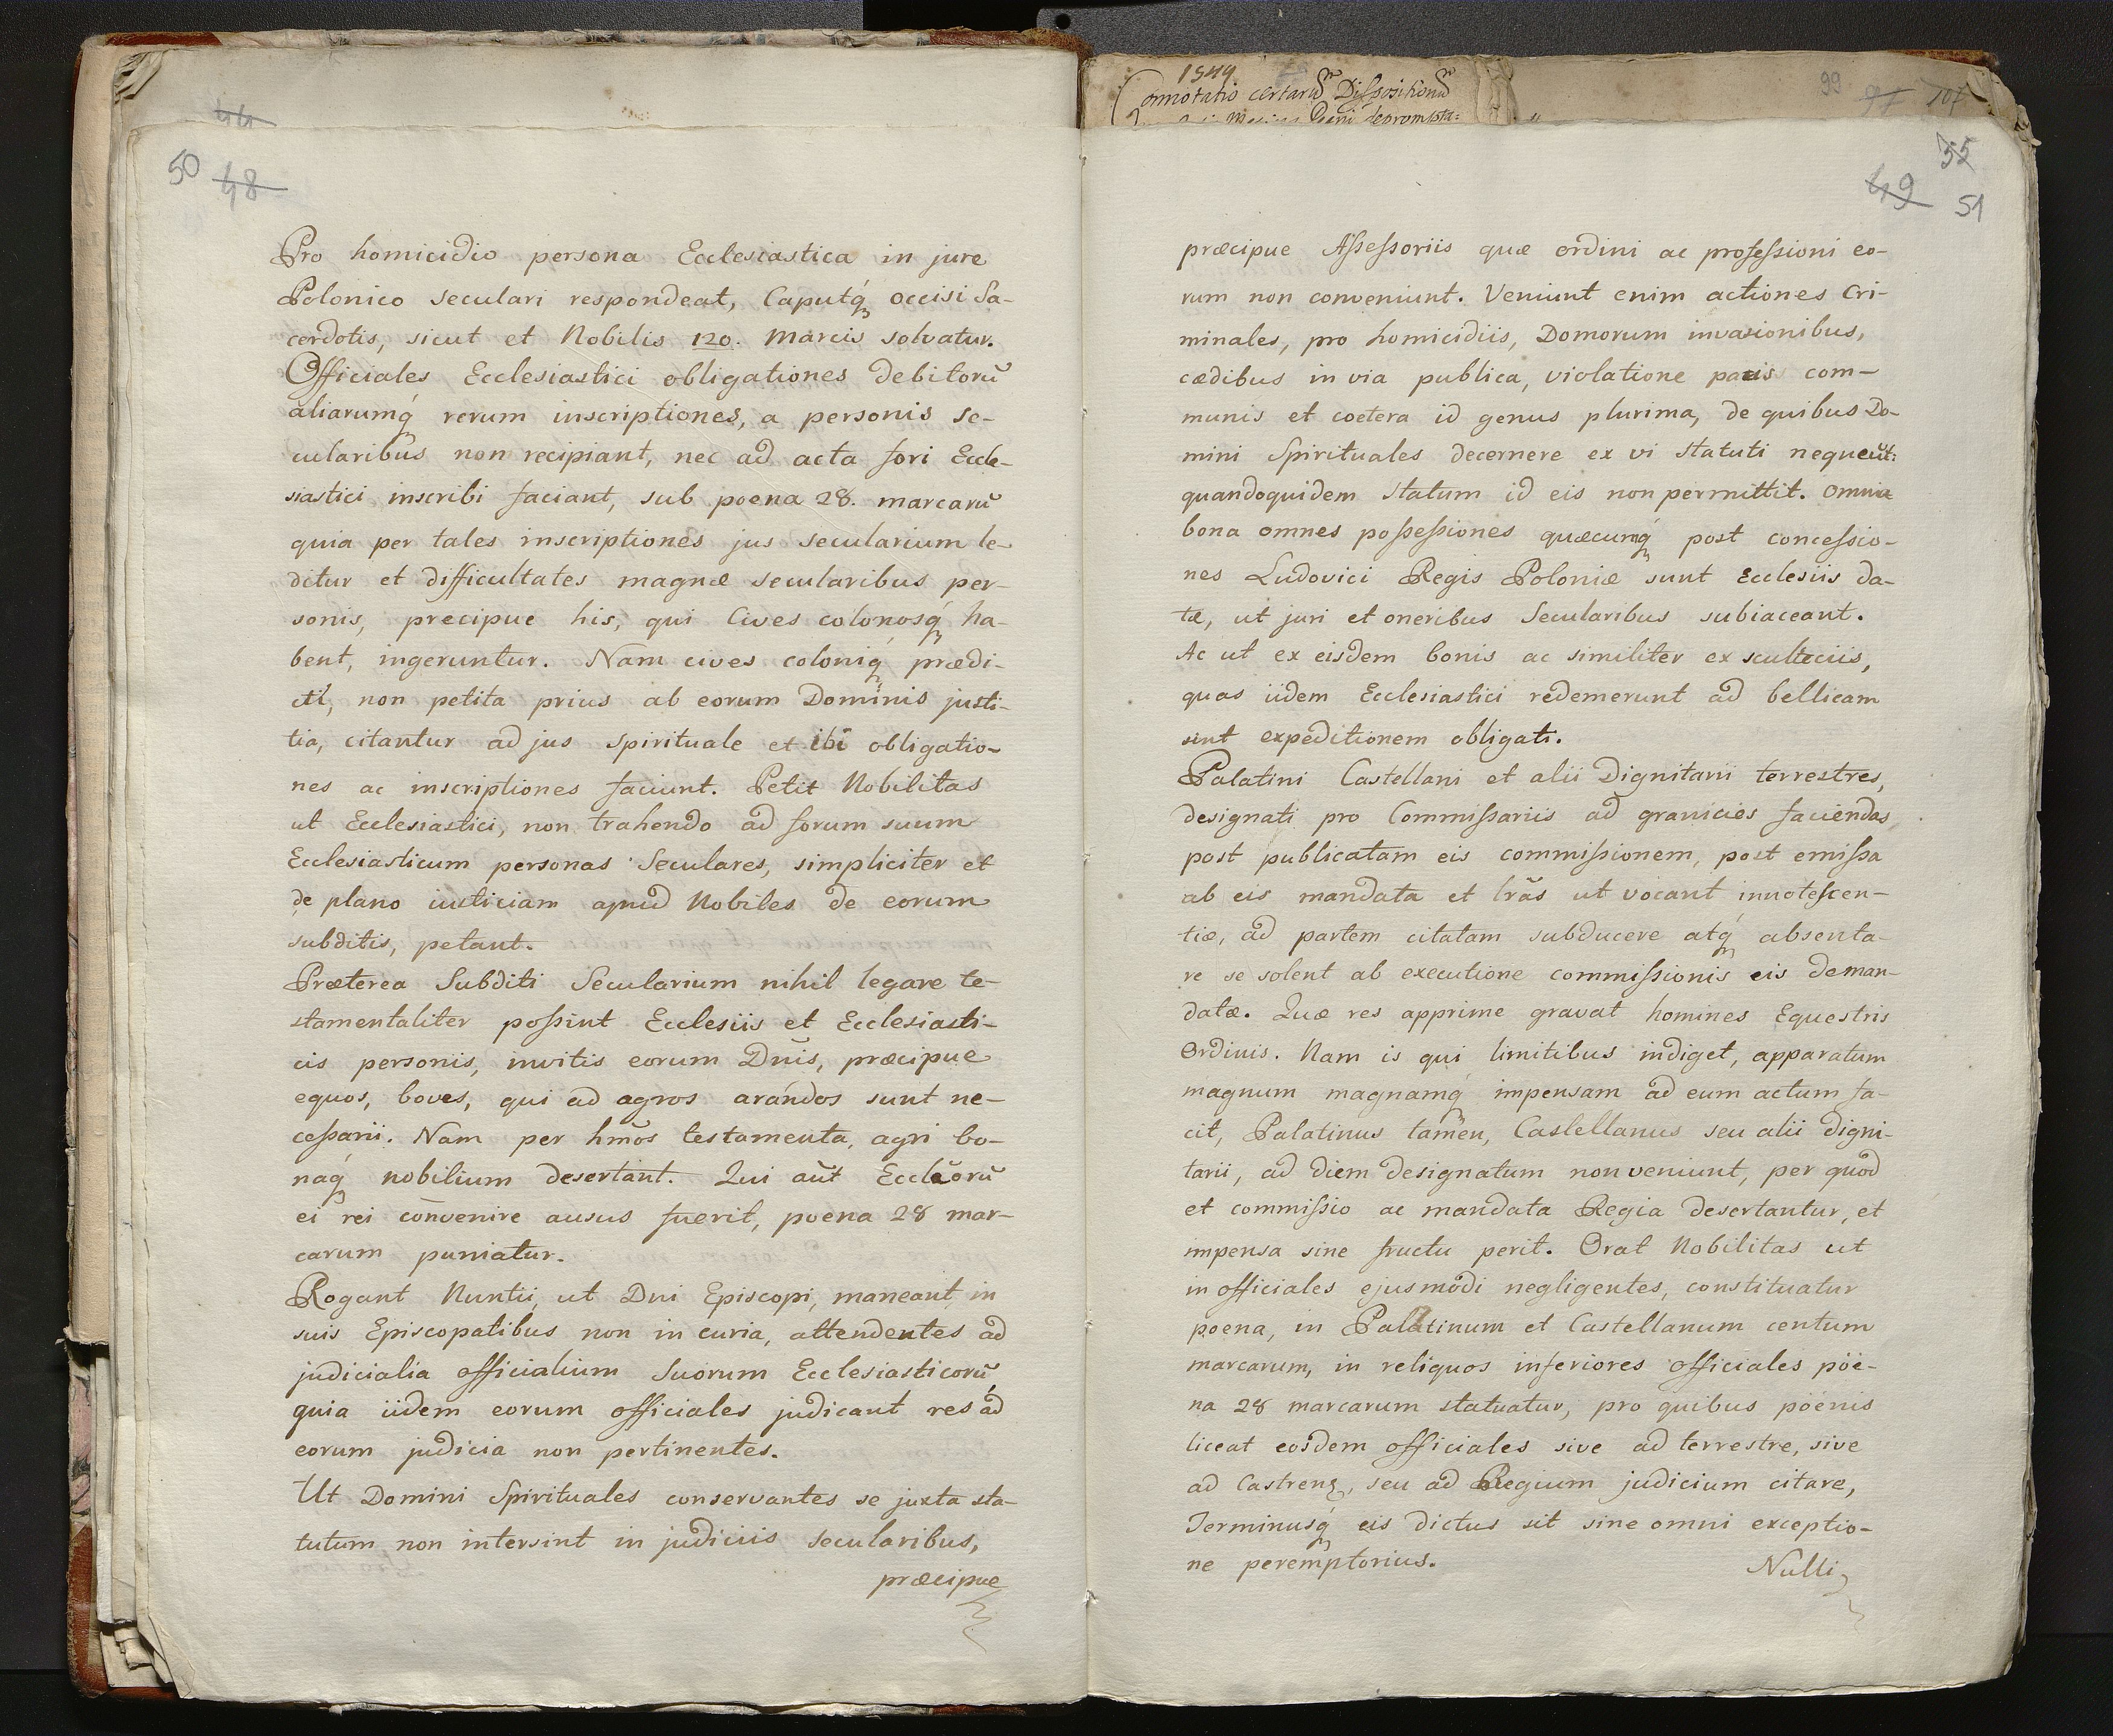 44
50 48
Pro homicidio persona Ecclesiastica in jure
Polonico seculari respondeat, Caputq́ occisi Sa-
cerdotis, sicut et Nobilis 120. Marcis solvatur.
Officiales Ecclesiastici obligationes debitorū
aliarumq́ rerum inscriptiones, a personis se-
cularibus non recipiant, nec ad acta fori Eccle-
siastici inscribi faciant, sub poena 28. marcarū
quia per tales inscriptiones jus secularium le-
ditur et difficultates magnæ secularibus per-
sonis, precipue his, qui Cives colonosq́ ha-
bent, ingeruntur. Nam cives coloniq́ prædi-
cti, non petita prius ab eorum Dominis justi-
tia, citantur ad jus spirituale et ibi obligatio-
nes ac inscriptiones faciunt. Petit Nobilitas
ut Ecclesiastici, non trahendo ad forum suum
Ecclesiasticum personas Seculares, simpliciter et
de plano iusticiam apud Nobiles de eorum
subditis, petant.
Præterea Subditi Secularium nihil legare te-
stamentaliter poßint Ecclesiis et Ecclesiasti-
cis personis, invitis eorum Dnīs, præcipue
equos, boves, qui ad agros arandos sunt ne-
ceßarii. Nam per hmōs testamenta, agri bo-
naq́ nobilium desertant. Qui aūt Ecclāorū
ei rei cōnvenire ausus fuerit, poena 28 mar-
carum puniatur.
Rogant Nuntii, ut Dni Episcopi, maneant in
suis Episcopatibus non in curia, attendentes ad
judicialia officialium Suorum Ecclesiasticorū,
quia iidem eorum officiales judicant res ad
eorum judicia non pertinentes.
Ut Domini Spirituales conservantes se juxta sta-
tutum non intersint in judiciis secularibus,
præcipue
1544
Connotatio certarū Dispositionū
99 97 107
55
49 51
præcipue Aßeßoriis quæ ordini ac profeßioni eo-
rum non conveniunt. Veniunt enim actiones Cri-
minales, pro homicidiis, Domorum invasionibus,
cædibus in via publica, violatione pacis com-
munis et coetera id genus plurima, de quibus Do-
mini Spirituales decernere ex vi Statuti nequeūt:
quandoquidem Statum id eis non permittit. Omnia
bona omnes poßeßiones quæcunq́ post conceßio-
nes Ludovici Regis Poloniæ sunt Ecclesiis da-
tæ, ut juri et oneribus Secularibus subiaceant.
Ac ut ex eisdem bonis ac similiter ex sculteciis,
quas iidem Ecclesiastici redemerunt ad bellicam
sint expeditionem obligati.
Palatini Castellani et alii Dignitarii terrestres,
designati pro Commißariis ad granicies faciendas
post publicatam eis commißionem, post emißa
ab eis mandata et lrās ut vocant innotescen-
tiæ, ad partem citatam subducere atq́ absenta-
re se solent ab executione commißionis eis deman-
datæ. Quæ res apprime gravat homines Equestris
Ordinis. Nam is qui limitibus indiget, apparatum
magnum magnamq́ impensam ad eum actum fa-
cit, Palatinus tamen, Castellanus seu alii digni-
tarii, ad diem designatum non veniunt, per quod
et commißio ac mandata Regia desertantur, et
impensa sine fructu perit. Orat Nobilitas ut
in officiales ejusmodi negligentes, constituatur
poena, in Palatinum et Castellanum centum
marcarum, in reliquos inferiores officiales pöe-
na 28 marcarum statuatur, pro quibus pöenis
liceat eosdem officiales sive ad terrestre, sive
ad Castrenʒ, seu ad Regium judicium citare,
Terminusq́ eis dictus sit sine omni exceptio-
ne peremptorius.
Nulli